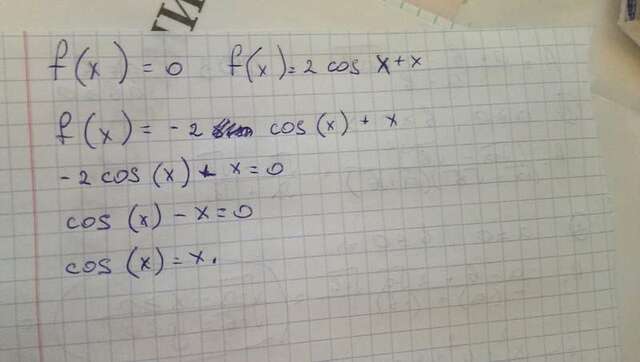 ТИ
f(x) = 0 f(x) = 2 cos x + x
f(x) = - 2 cos(x) + x
- 2 cos(x) + x = 0
cos (x) - x = 0
cos (x) = x.